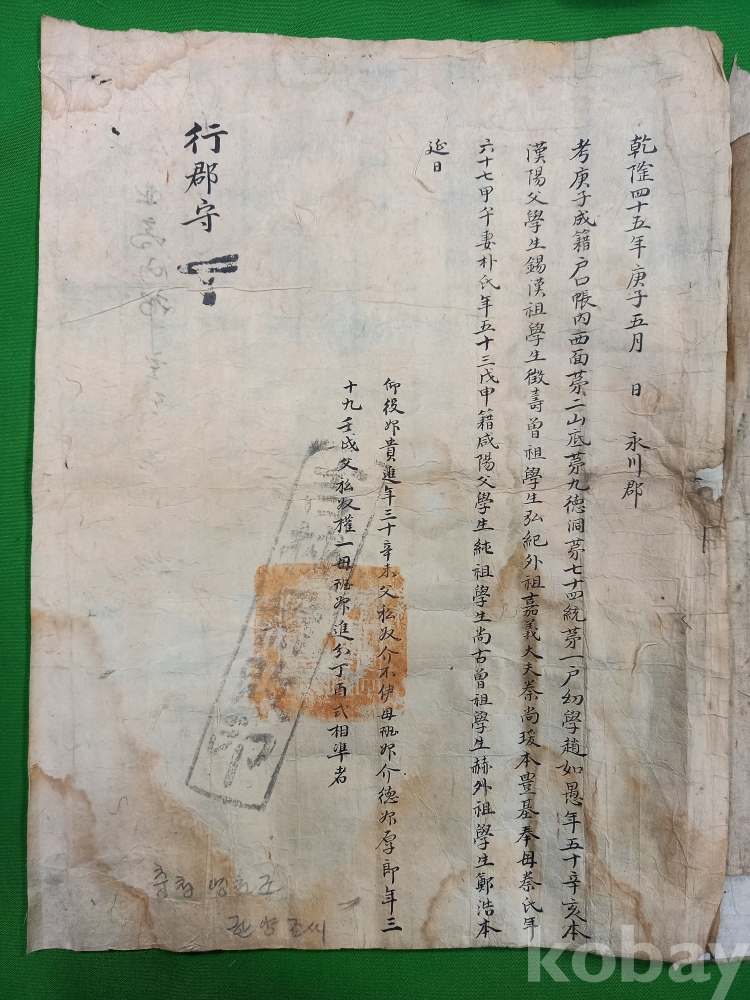 乾隆四十五年庚子五月 日 永川郡
考庚子成籍戶口帳內西面苐二山底苐九德洞苐七十四統苐一戶幼學趙如愚年五十辛亥本
漢陽父學生錫漢祖學生徵壽曾祖學生弘紀外祖嘉義大夫秦尚瑗本豊基奉母秦氏年
六十七甲午妻朴氏年五十三戊申籍咸陽父學生純祖學生尚古曾祖學生赫外祖學生鄭浩本
延日
仰役婢貴進年三十辛未父私奴介不伊母班婢介德婢厚郎年三
十九壬戌父私奴權一母班婢進分丁酉式相準者
行郡守
충청 영천군
한양 조씨
kobay